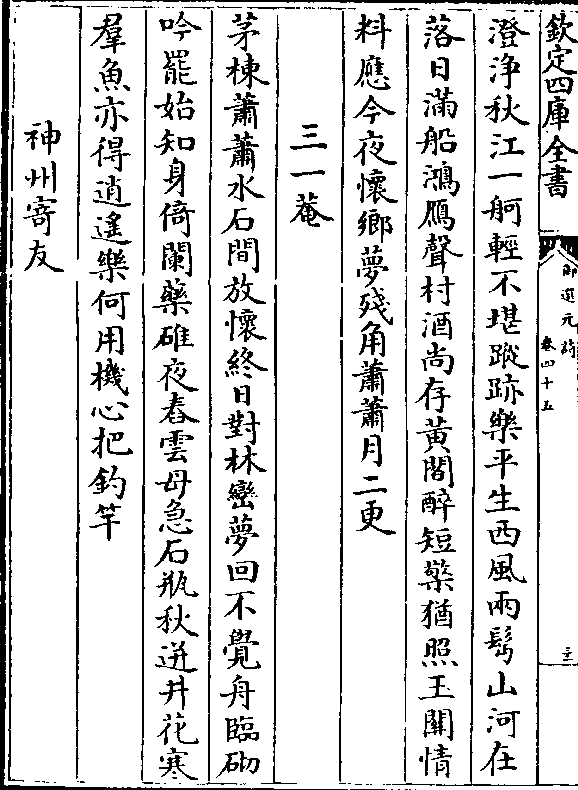 欽定四庫全書
御選元詩 卷四十五
澄浄秋江一舸輕不堪蹤跡樂平生西風兩鬂山河在
落日滿船鴻鴈聲村酒尚存黄閣醉短檠猶照玉關情
料應今夜懷鄉夢殘角蕭蕭月二更
三一菴
茅棟蕭蕭水石間放懷終日對林巒夢回不覺舟臨砌
吟罷始知身倚闌藥碓夜舂雲母急石瓶秋迸井花寒
羣魚亦得逍遥樂何用機心把釣竿
神州寄友